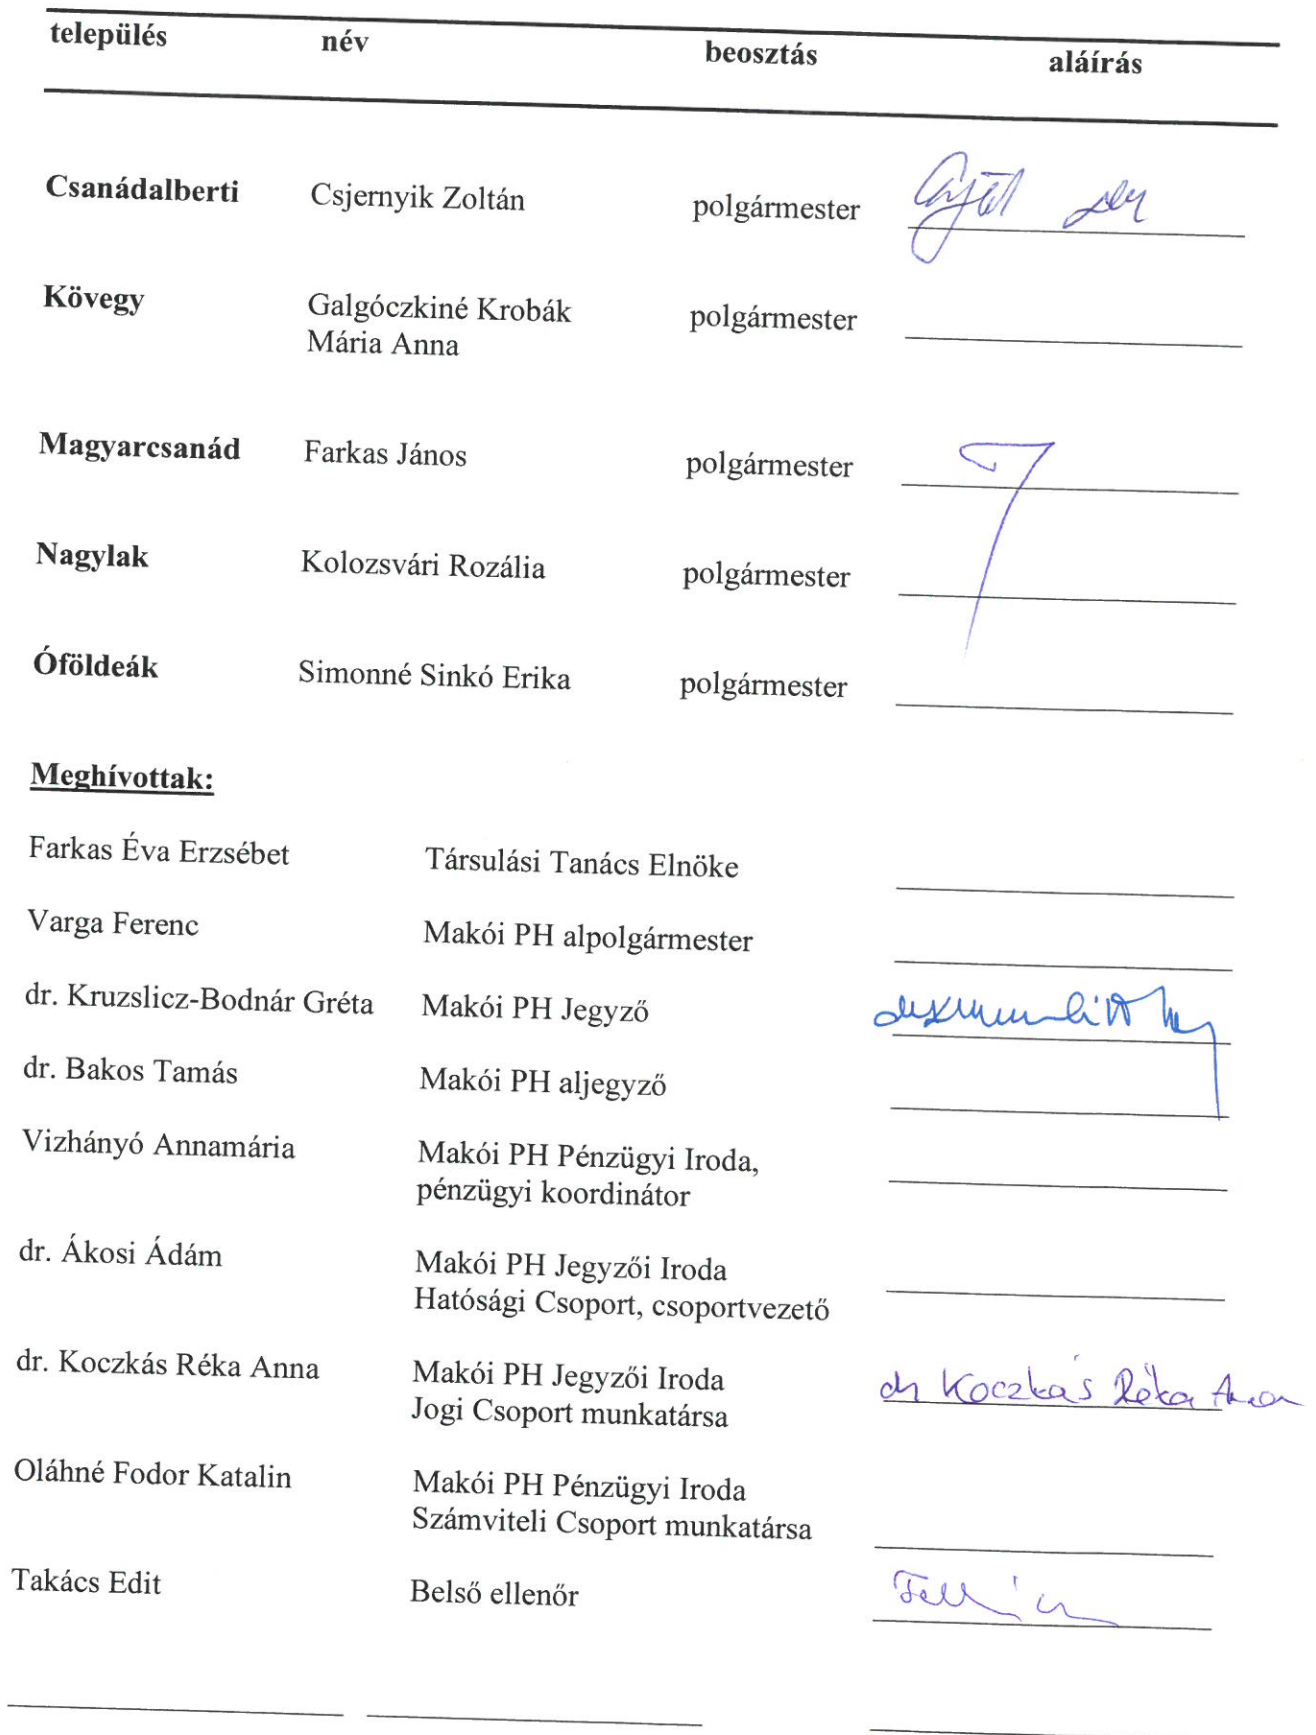 település név beosztás aláírás
Csanádalberti Csjernyik Zoltán polgármester
Kövegy Galgóczkiné Krobák polgármester
Mária Anna
Magyarcsanád Farkas János polgármester
Nagylak Kolozsvári Rozália polgármester
Óföldeák Simonné Sinkó Erika polgármester
Meghívottak:
Farkas Éva Erzsébet Társulási Tanács Elnöke
Varga Ferenc Makói PH alpolgármester
dr. Kruzslicz-Bodnár Gréta Makói PH Jegyző
dr. Bakos Tamás Makói PH aljegyző
Vizhányó Annamária Makói PH Pénzügyi Iroda,
pénzügyi koordinátor
dr. Ákosi Ádám Makói PH Jegyzői Iroda
Hatósági Csoport, csoportvezető
dr. Koczkás Réka Anna Makói PH Jegyzői Iroda dr Koczkás Réka Anna
Jogi Csoport munkatársa
Oláhné Fodor Katalin Makói PH Pénzügyi Iroda
Számviteli Csoport munkatársa
Takács Edit Belső ellenőr